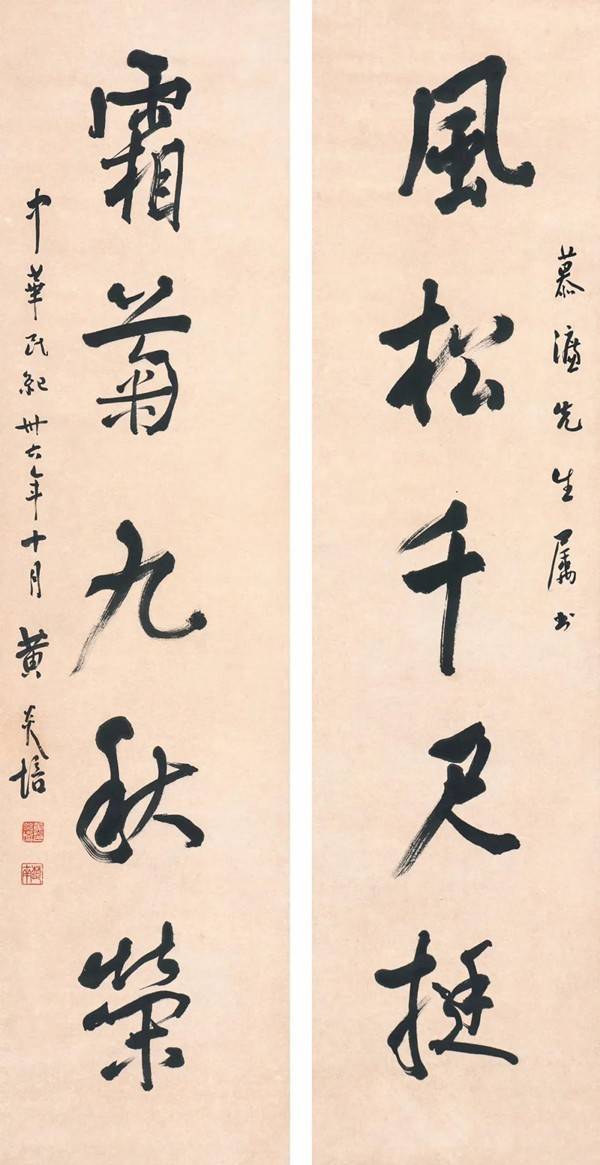 慕濂先生属书
風松千尺挺
霜菊九秋榮
中華民紀卅六年十月黄炎培